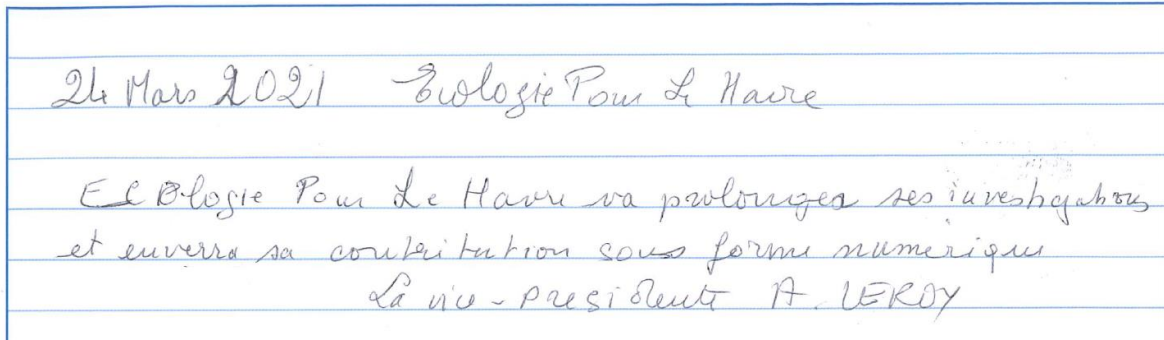 24 Mars 2021 Ecologie Pour Le Havre
Ecologie Pour Le Havre va prolonger ses investigations
et enverra sa contribution sous forme numerique
La vice-presidente A. LEROY